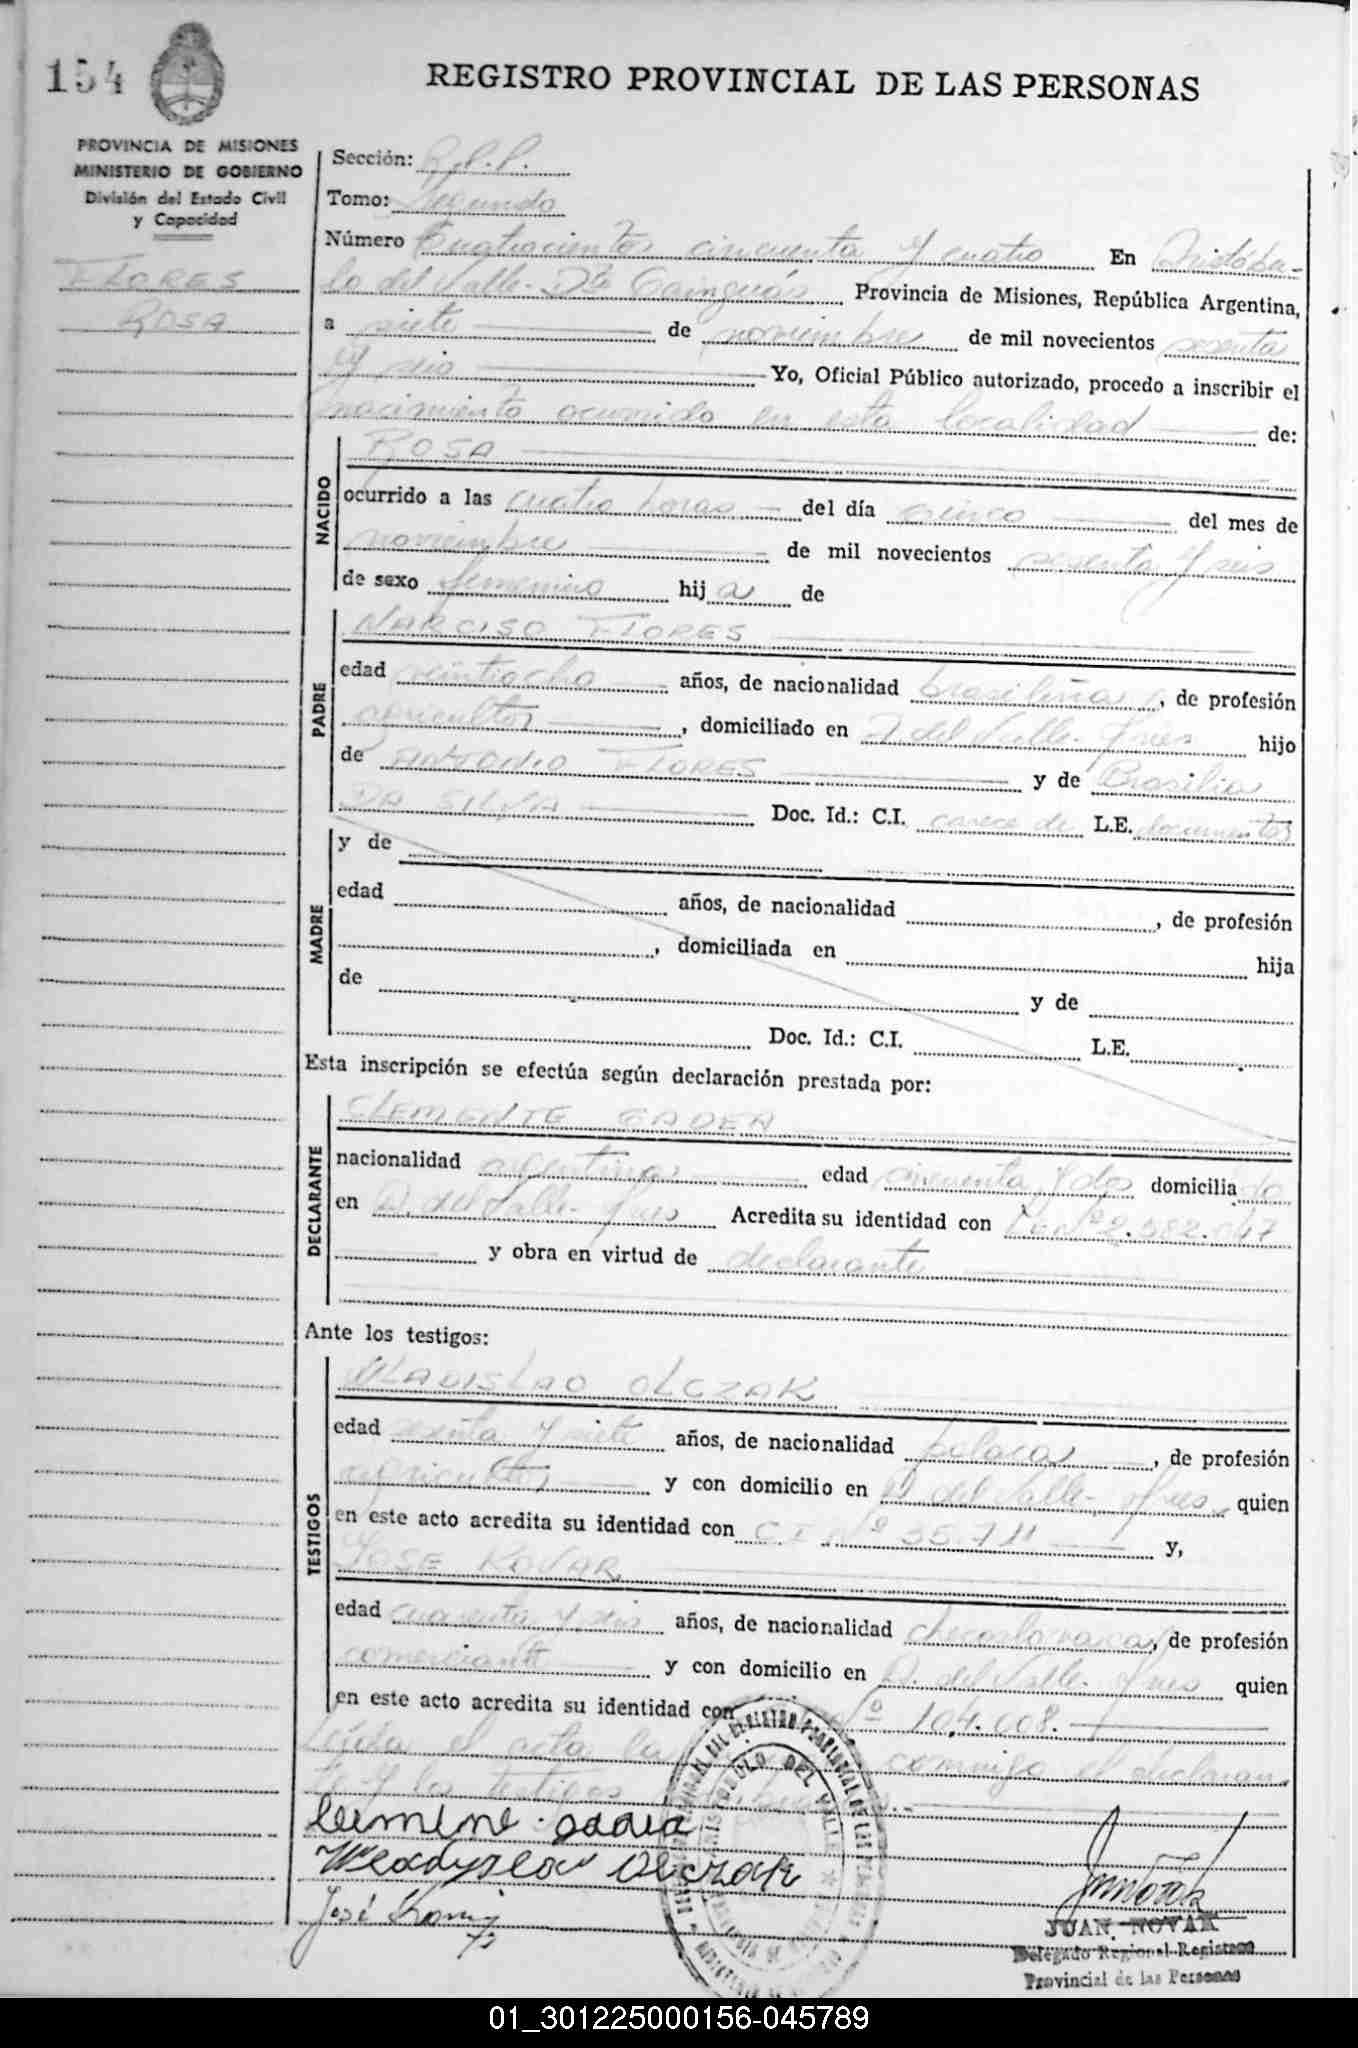 154
REGISTRO PROVINCIAL DE LAS PERSONAS
PROVINCIA DE MISIONES
MINISTERIO DE GOBIERNO
División del Estado Civil
y Capacidad
FLORES
ROSA
Sección: R.P.P.
Tomo: Segundo
Número Cuatrocientos cincuenta y cuatro En Aristóbu-
lo del Valle - Dto Cainguás Provincia de Misiones, República Argentina,
a siete de noviembre de mil novecientos sesenta
y seis Yo, Oficial Público autorizado, procedo a inscribir el
nacimiento ocurrido en esta localidad de:
NACIDO
ROSA
ocurrido a las cuatro horas del día cinco del mes de
noviembre de mil novecientos sesenta y seis
de sexo femenino hij a de
PADRE
NARCISO FLORES
edad veintiocho años, de nacionalidad brasileña, de profesión
agricultor, domiciliado en A. del Valle - Mnes hijo
de ANTONIO FLORES y de Brasilia
DA SILVA Doc. Id.: C.I. carece de L.E. documentos
MADRE
y de
edad años, de nacionalidad , de profesión
, domiciliada en hija
de y de
Doc. Id.: C.I. L.E.
Esta inscripción se efectúa según declaración prestada por:
DECLARANTE
CLEMENTE GADEA
nacionalidad argentina edad cincuenta y dos domicilia do
en A. del Valle - Mnes Acredita su identidad con Nº 2.582.047
y obra en virtud de declarante
Ante los testigos:
TESTIGOS
WLADISLAO OLCZAK
edad sesenta y siete años, de nacionalidad polaca, de profesión
agricultor y con domicilio en A. del Valle - Mnes, quien
en este acto acredita su identidad con C.I. Nº 35.711 y,
JOSE KOVAR
edad cuarenta y seis años, de nacionalidad checoslovaca, de profesión
comerciante y con domicilio en A. del Valle - Mnes quien
en este acto acredita su identidad con Nº 104.008.
Leída el acta la conmigo el declaran-
te y los testigos
Wladyslaw Olczak
José
ARISTOBULO DEL VALLE
JUAN NOVAK
Delegado Regional Registro
Provincial de las Personas
01_301225000156-045789